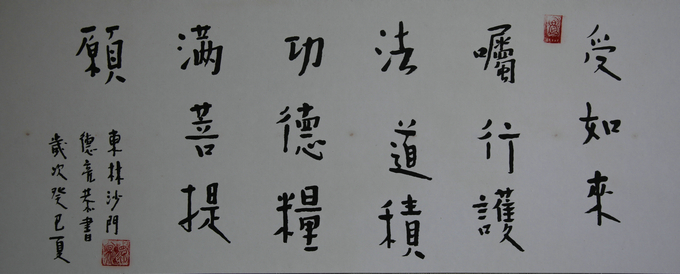 受如來
囑行護
法道積
功德糧
滿菩提
願
東林沙門
德亮恭書
歲次癸巳夏